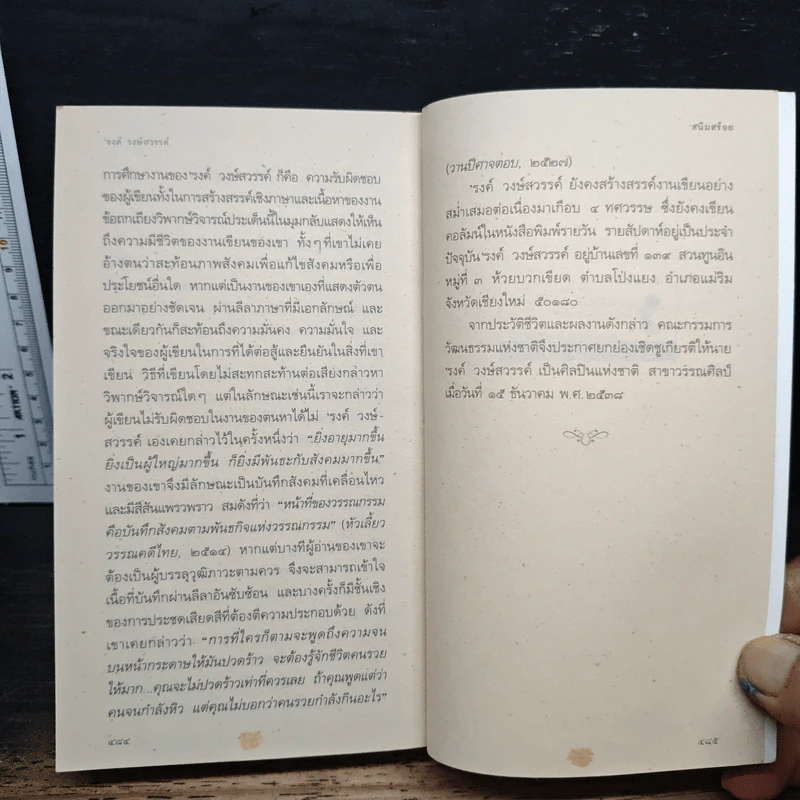 'รงค์ วงษ์สวรรค์
การศึกษางานของ 'รงค์ วงษ์สวรรค์ ก็คือ ความรับผิดชอบ
ของผู้เขียนทั้งในการสร้างสรรค์เชิงภาษาและเนื้อหาของงาน
ข้อถกเถียงวิพากษ์วิจารณ์ประเด็นนี้ในมุมกลับแสดงให้เห็น
ถึงความมีชีวิตของงานเขียนของเขา ทั้งๆ ที่เขาไม่เคย
อ้างตนว่าสะท้อนภาพสังคมเพื่อแก้ไขสังคมหรือเพื่อ
ประโยชน์อื่นใด หากแต่เป็นงานของเขาเองที่แสดงตัวตน
ออกมาอย่างชัดเจน ผ่านลีลาภาษาที่มีเอกลักษณ์ และ
ขณะเดียวกันก็สะท้อนถึงความมั่นคง ความมั่นใจ และ
จริงใจของผู้เขียนในการที่ได้ต่อสู้และยืนยันในสิ่งที่เขา
เขียน วิธีที่เขียนโดยไม่สะทกสะท้านต่อเสียงกล่าวหา
วิพากษ์วิจารณ์ใดๆ แต่ในลักษณะเช่นนี้เราจะกล่าวว่า
ผู้เขียนไม่รับผิดชอบในงานของตนหาได้ไม่ 'รงค์ วงษ์-
สวรรค์ เองเคยกล่าวไว้ในครั้งหนึ่งว่า “ยิ่งอายุมากขึ้น
ยิ่งเป็นผู้ใหญ่มากขึ้น ก็ยิ่งมีพันธะกับสังคมมากขึ้น”
งานของเขาจึงมีลักษณะเป็นบันทึกสังคมที่เคลื่อนไหว
และมีสีสันแพรวพราว สมดังที่ว่า “หน้าที่ของวรรณกรรม
คือบันทึกสังคมตามพันธกิจแห่งวรรณกรรม” (หัวเลี้ยว
วรรณคดีไทย, ๒๕๑๔) หากแต่บางทีผู้อ่านของเขาจะ
ต้องเป็นผู้บรรลุวุฒิภาวะตามควร จึงจะสามารถเข้าใจ
เนื้อที่บันทึกผ่านลีลาอันซับซ้อน และบางครั้งก็มีชั้นเชิง
ของการประชดเสียดสีที่ต้องตีความประกอบด้วย ดังที่
เขาเคยกล่าวว่า “การที่ใครก็ตามจะพูดถึงความจน
บนหน้ากระดาษให้มันปวดร้าว จะต้องรู้จักชีวิตคนรวย
ให้มาก...คุณจะไม่ปวดร้าวเท่าที่ควรเลย ถ้าคุณพูดแต่ว่า
คนจนกำลังหิว แต่คุณไม่บอกว่าคนรวยกำลังกินอะไร”
๔๘๔
สนิมสร้อย
(วานปีศาจตอบ, ๒๕๒๗)
'รงค์ วงษ์สวรรค์ ยังคงสร้างสรรค์งานเขียนอย่าง
สม่ำเสมอต่อเนื่องมาเกือบ ๔ ทศวรรษ ซึ่งยังคงเขียน
คอลัมน์ในหนังสือพิมพ์รายวัน รายสัปดาห์อยู่เป็นประจำ
ปัจจุบัน 'รงค์ วงษ์สวรรค์ อยู่บ้านเลขที่ ๑๓๙ สวนทูนอิน
หมู่ที่ ๓ ห้วยบวกเขียด ตำบลโป่งแยง อำเภอแม่ริม
จังหวัดเชียงใหม่ ๕๐๑๘๐
จากประวัติชีวิตและผลงานดังกล่าว คณะกรรมการ
วัฒนธรรมแห่งชาติจึงประกาศยกย่องเชิดชูเกียรติให้นาย
'รงค์ วงษ์สวรรค์ เป็นศิลปินแห่งชาติ สาขาวรรณศิลป์
เมื่อวันที่ ๑๕ ธันวาคม พ.ศ.๒๕๓๘
๔๘๕